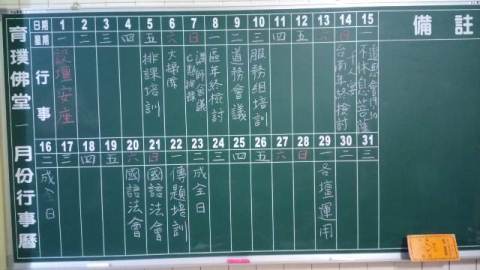 育璞佛堂 一月份行事曆
日期 1 2 3 4 5 6 7 8 9 10 11 12 13 14 15 備註
星期 一 二 三 四 五 六 日 一 二 三 四 五 六 日 一
行事
設壇安座
排課培訓
大掃除
講師會議
區年終檢討
道務會議
服務組培訓
台南年終檢討
不休息菩薩
16 17 18 19 20 21 22 23 24 25 26 27 28 29 30 31
二 三 四 五 六 日 一 二 三 四 五 六 日 一 二 三
成全日
國語法會
國語法會
專題培訓
成全日
各壇運用